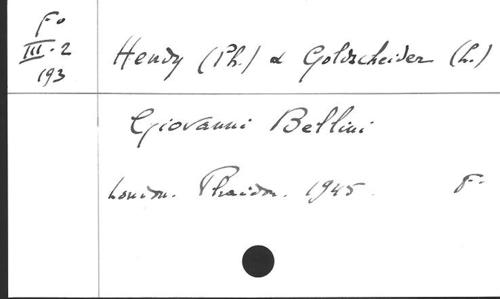 Fo
III.2
193
Hendy (Ph.) & Goldscheider (L.)
Giovanni Bellini
London. Phaidon. 1945. F.